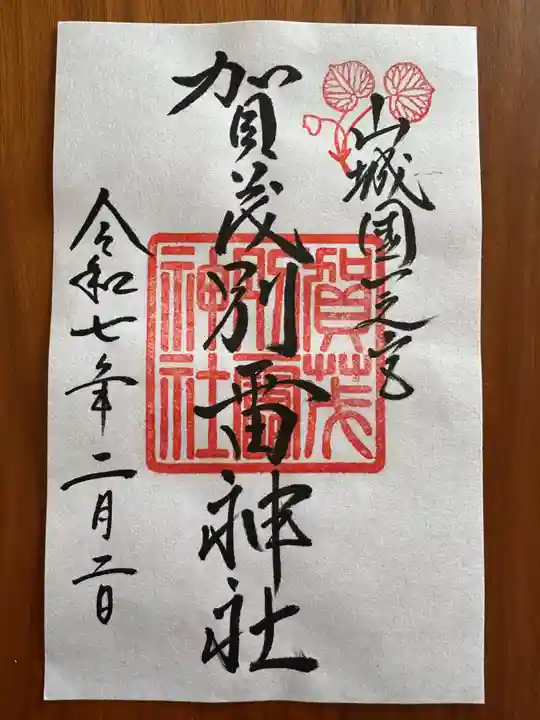 山城國一之宮
賀茂別雷神社
賀茂
別雷
神社
令和七年二月二日